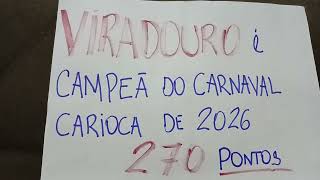 VIRADOURO é
CAMPEÃ DO CARNAVAL
CARIOCA DE 2026
270 PONTOS